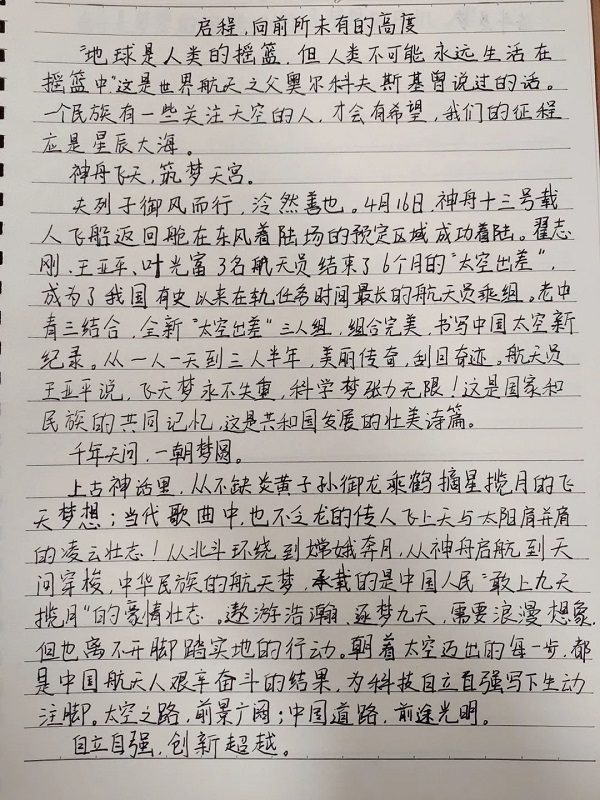 启程,向前所未有的高度
"地球是人类的摇篮,但人类不可能永远生活在
摇篮中"这是世界航天之父奥尔科夫斯基曾说过的话。
一个民族有一些关注天空的人,才会有希望,我们的征程
应是星辰大海。
神舟飞天,筑梦天宫。
夫列子御风而行,泠然善也。4月16日,神舟十三号载
人飞船返回舱在东风着陆场的预定区域成功着陆。翟志
刚、王亚平、叶光富3名航天员结束了6个月的"太空出差",
成为了我国有史以来在轨任务时间最长的航天员乘组。老中
青三结合,全新"太空出差"三人组,组合完美,书写中国太空新
纪录。从一人一天到三人半年,美丽传奇,刮目奇迹。航天员
王亚平说,飞天梦永不失重,科学梦张力无限!这是国家和
民族的共同记忆,这是共和国发展的壮美诗篇。
千年天问,一朝梦圆。
上古神话里,从不缺炎黄子孙御龙乘鹤摘星揽月的飞
天梦想;当代歌曲中,也不乏龙的传人飞上天与太阳肩并肩
的凌云壮志!从北斗环绕到嫦娥奔月,从神舟启航到天
问穿梭,中华民族的航天梦,承载的是中国人民"敢上九天
揽月"的豪情壮志。遨游浩瀚,逐梦九天,需要浪漫想象,
但也离不开脚踏实地的行动。朝着太空迈出的每一步,都
是中国航天人艰辛奋斗的结果,为科技自立自强写下生动
注脚。太空之路,前景广阔;中国道路,前途光明。
自立自强,创新超越。